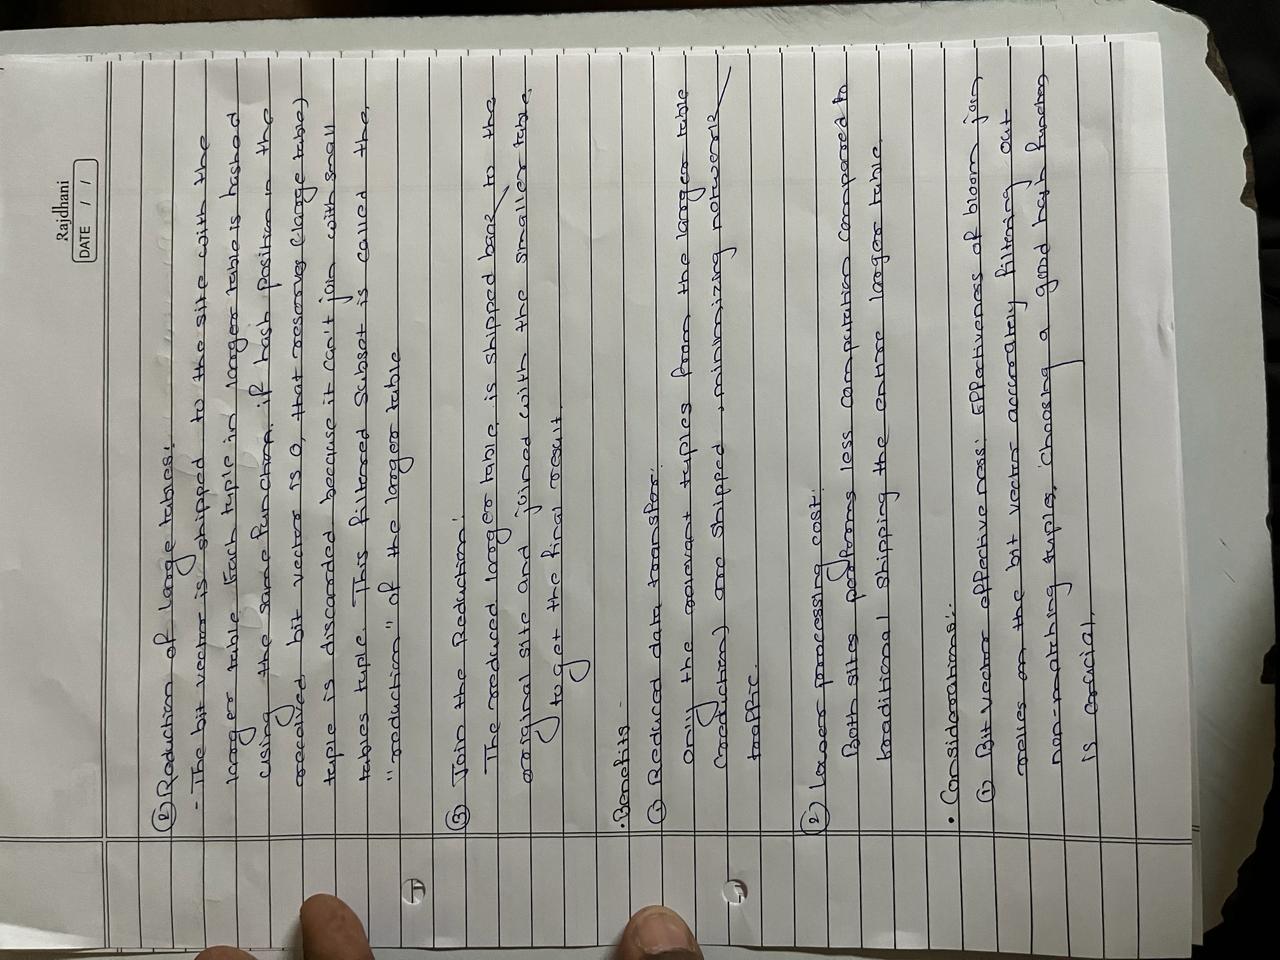 Rajdhani
DATE / /
② Reduction of large tables:
- The bit vector is shipped to the site with the
larger table. Each tuple in larger table is hashed
using the same function. if hash position in the
received bit vector is 0, that reserves (large table)
tuple is discarded because it can't join with small
tables tuple. This filtered subset is called the,
"reduction" of the larger table
③ Join the Reduction:
The reduced larger table is shipped back to the
original site and joined with the smaller table,
to get the final result.
• Benefits -
① Reduced data transfer:
only the relevant tuples from the larger table
(reduction) are shipped, minimizing network
traffic.
② Lower processing cost:
Both sites performs less computation compared to
traditional shipping the entire larger table.
• Considerations:
① Bit vector effectiveness: Effectiveness of bloom join
relies on the bit vector accurately filtering out
non-matching tuples. Choosing a good hash function
is crucial.